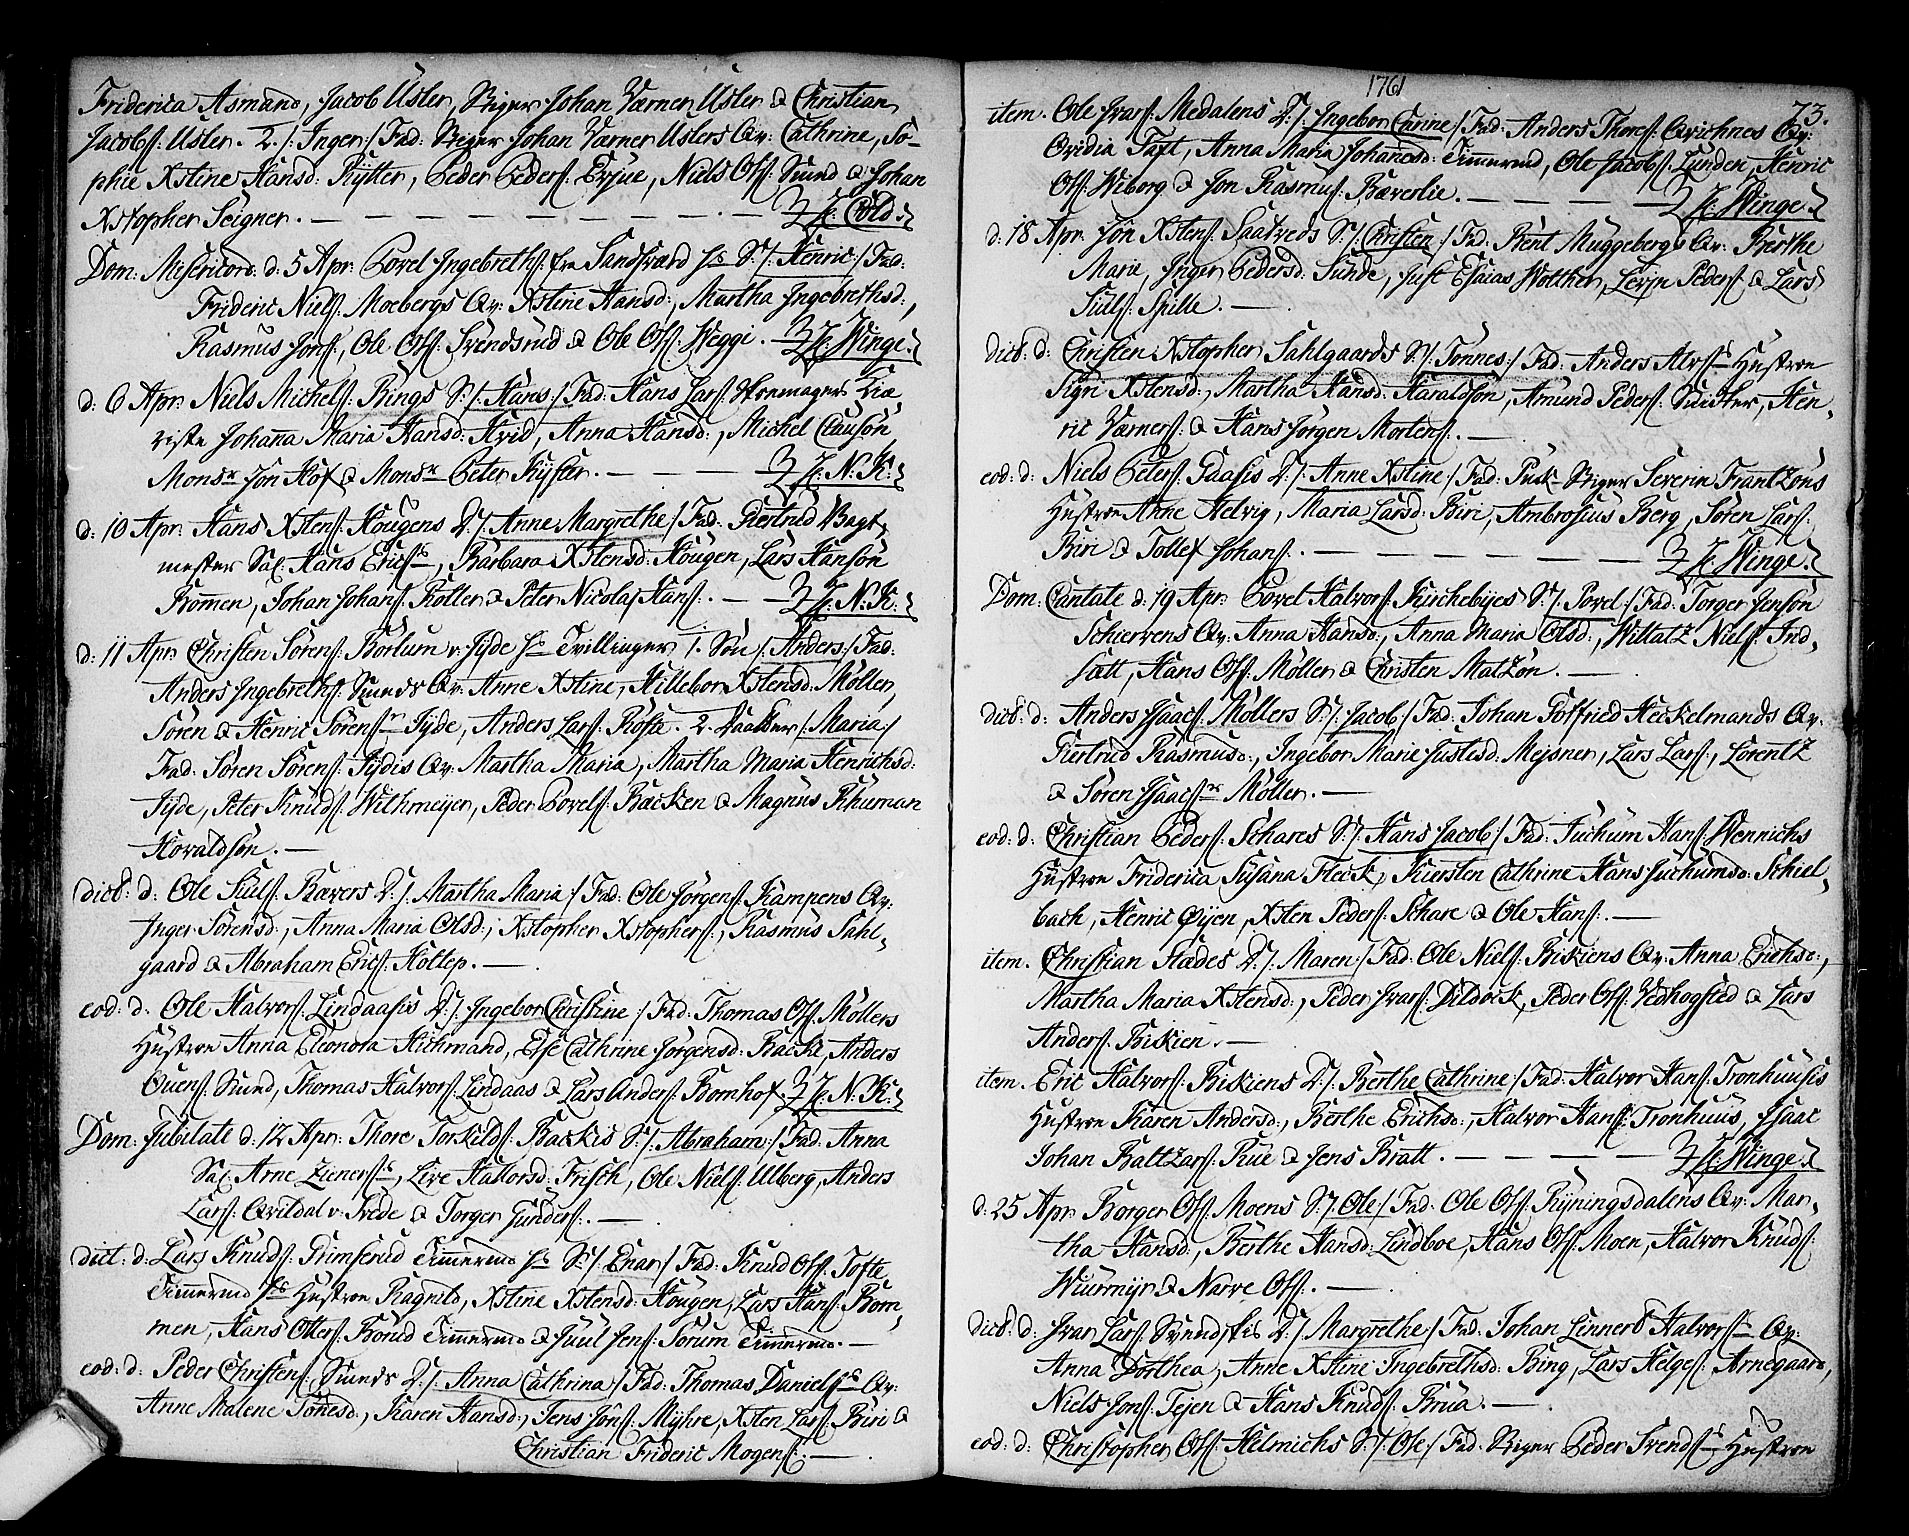 Friderica Asmand, Jacob Usler, Stiger Johan Værner Usler & Christian
Jacobs: Usler. 2. /: Inger:/ Fad: Stiger Johan Værner Uslers Qv: Cathrine, So-
phie Xstine Hansd: Rytter, Peder Peders: Erjue, Niels Ols: Sund & Johan
Xstopher Seigner. — H: Cold.
Dom: Misericord: d: 5 Apr: Povel Ingebreths: fra Sandsværd hs S: /: Henric:/ Fad:
Frideric Niels: Moebergs Qv: Xstine Hansd:, Martha Ingebrethsd:,
Rasmus Jons:, Ole Ols: Svendsrud & Ole Ols: Heggi. — H: Winge.
d: 6 Apr: Niels Michels: Rings S: /: Hans:/ Fad: Hans Lars: Skomagers Kiæ,
riste Johanna Maria Hansd: Hvid, Anna Hansd:, Michel Clausøn,
Monsr Jon Hof & Monsr Peter Kyser. — H: N. K:
d: 10 Apr: Hans Xstens: Hougens D: /: Anne Margrethe:/ Fad: Giertrud Vagt,
mester Sal: Hans Erics:, Barbara Xstensd: Hougen, Lars Hansøn
Bommen, Johan Johans: Roller & Peter Nicolaj Hans:. — H: N. K:
d: 11 Apr: Christen Sørens: Borlum v: Jyde hs Tvillinger 1. Søn /: Anders:/ Fad:
Anders Ingebreths: Sunds Qv: Anne Xstine, Hillebor Xstensd: Møller,
Søren & Henric Sørens: Jyde, Anders Lars: Roste. 2. Daatter /: Maria:/
Fad: Søren Sørens: Jydis Qv: Martha Maria, Martha Maria Henrichsd:
Jyde, Peter Knuds: Withmeyer, Peder Povels: Bæcken & Magnus Schuman
Horaldsøn. —
dict: d: Ole Siuls: Bævers D: /: Martha Maria:/ Fad: Ole Jørgens: Kampens Qv:
Inger Sørensd:, Anna Maria Olsd:, Xstopher Xstophers:, Rasmus Sahl,
gaard & Abraham Erics: Holtep. —
eod: d: Ole Halvors: Lindaasis D: /: Ingebor Christine:/ Fad: Thomas Ols: Møllers
Hustroe Anna Eleonora Hichmand, Else Cathrine Jørgensd: Backe, Anders
Ouens: Sund, Thomas Halvors: Lindaas & Lars Anders: Bomhof. H: N. K:
Dom: Jubilate d: 12 Apr: Thore Torkilds: Backis S: /: Abraham:/ Fad: Anna
Sal: Arne Zieners:, Live Hallorsd: Frisch, Ole Niels: Ulberg, Anders
Lars: Qvildal v: Frede & Torger Gunders:. —
dict: d: Lars Knuds: Grimserud Timmermd hs S: /: Enar:/ Fad: Knud Ols: Tofte
Timmermd hs Hustroe Ragnild, Xstine Xstensd: Hougen, Lars Hans: Bom,
men, Hans Olters: Forud Timmermd & Juul Jens: Sorum Timmermd. —
eod: d: Peder Christens: Sunds D: /: Anna Cathrina:/ Fad: Thomas Daniels: Qv:
Anne Malene Tønnesd:, Karen Hansd:, Jens Jøns: Myhre, Xsten Lars: Buri &
Christian Frideric Mogens:. —
1761
73.
item. Ole Ivars: Medalens D: /: Ingebor Curine:/ Fad: Anders Thores: Qvichnes Qv:
Ovidia Taft, Anna Maria Johannesd: Timmermd, Ole Jacobs: Lunden, Henric
Ols: Wiborg & Jon Rasmus: Bæverlie. — H: Winge.
d: 18 Apr: Jon Xstens: Saatreds S: /: Christen:/ Fad: Bent Muggebergs Qv: Berthe
Marie, Inger Pedersd: Sunde, Just Esaias Wolther, Levin Peders: & Lars
Siuls: Spille. —
dict: d: Christen Xstopher Sahlgaards S: /: Tonnes:/ Fad: Anders Alvs: Hustroe
Sigri Xstensd:, Martha Hansd: Haraldson, Amund Peders: Snidker, Hen,
ric Værners: & Hans Jørgen Mortens:. —
eod: d: Niels Peters: Gaasis D: /: Anne Xstine:/ Fad: Puck-Stiger Severin Frantzøns
Hustroe Anne Helvig, Maria Larsd: Biri, Ambrosius Berg, Søren Lars:
Biri & Tollef Johans:. — H: Winge.
Dom: Cantate d: 19 Apr: Povel Halvors: Kirchebyes S: /: Povel:/ Fad: Torger Jensøn
Schierrens Qv: Anna Hansd:, Anna Maria Olsd:, Willatz Niels: Ind,
satt, Hans Ols: Møller & Christen Matzøn. —
dict: d: Anders Isaacs: Møllers S: /: Jacob:/ Fad: Johan Gotfried Heckelmands Qv:
Giertrud Rasmusd:, Ingebor Marie Justisd: Mejsner, Lars Lars:, Lorentz
& Søren Isaacs: Møller. —
eod: d: Christian Peders: Schares S: /: Hans Jacob:/ Fad: Juchum Hans: Wennichs
Hustroe Friderica Susana Fleck, Kiersten Cathrine Hans Juchumsd: Schiel,
bach, Henric Øijen, Xsten Peders: Schare & Ole Hans:. —
item. Christian Stædes D: /: Maren:/ Fad: Ole Niels: Bikiens Qv: Anna Erichsd:,
Martha Maria Xstensd:, Peder Ivars: Dildock, Peder Ols: Vedhogsted & Lars
Anders: Bikien. —
item. Eric Halvors: Bikiens D: /: Berthe Cathrine:/ Fad: Halvor Hans: Tronhuusis
Hustroe Karen Andersd:, Berthe Erichsd:, Halvor Hans: Tronhuus, Isaac
Johan Baltzars: Rue & Jens Bratt. — H: Winge.
d: 25 Apr: Borger Ols: Moens S: /: Ole:/ Fad: Ole Ols: Ryningsdalens Qv: Mar,
tha Hansd:, Berthe Hansd: Lindboe, Hans Ols: Moen, Halvor Knuds:
Wiurmyr & Narve Ols:. —
dict: d: Ivar Lars: Svendskis D: /: Margrethe:/ Fad: Johan Linnert Halvors: Qv:
Anna Dorthea, Anne Xstine Ingebrethsd: Bing, Lars Helges: Arnegaard,
Niels Jons: Tejen & Hans Knuds: Brua. —
eod: d: Christopher Ols: Helmichs S: /: Ole:/ Fad: Stiger Peder Svends: Hustroe